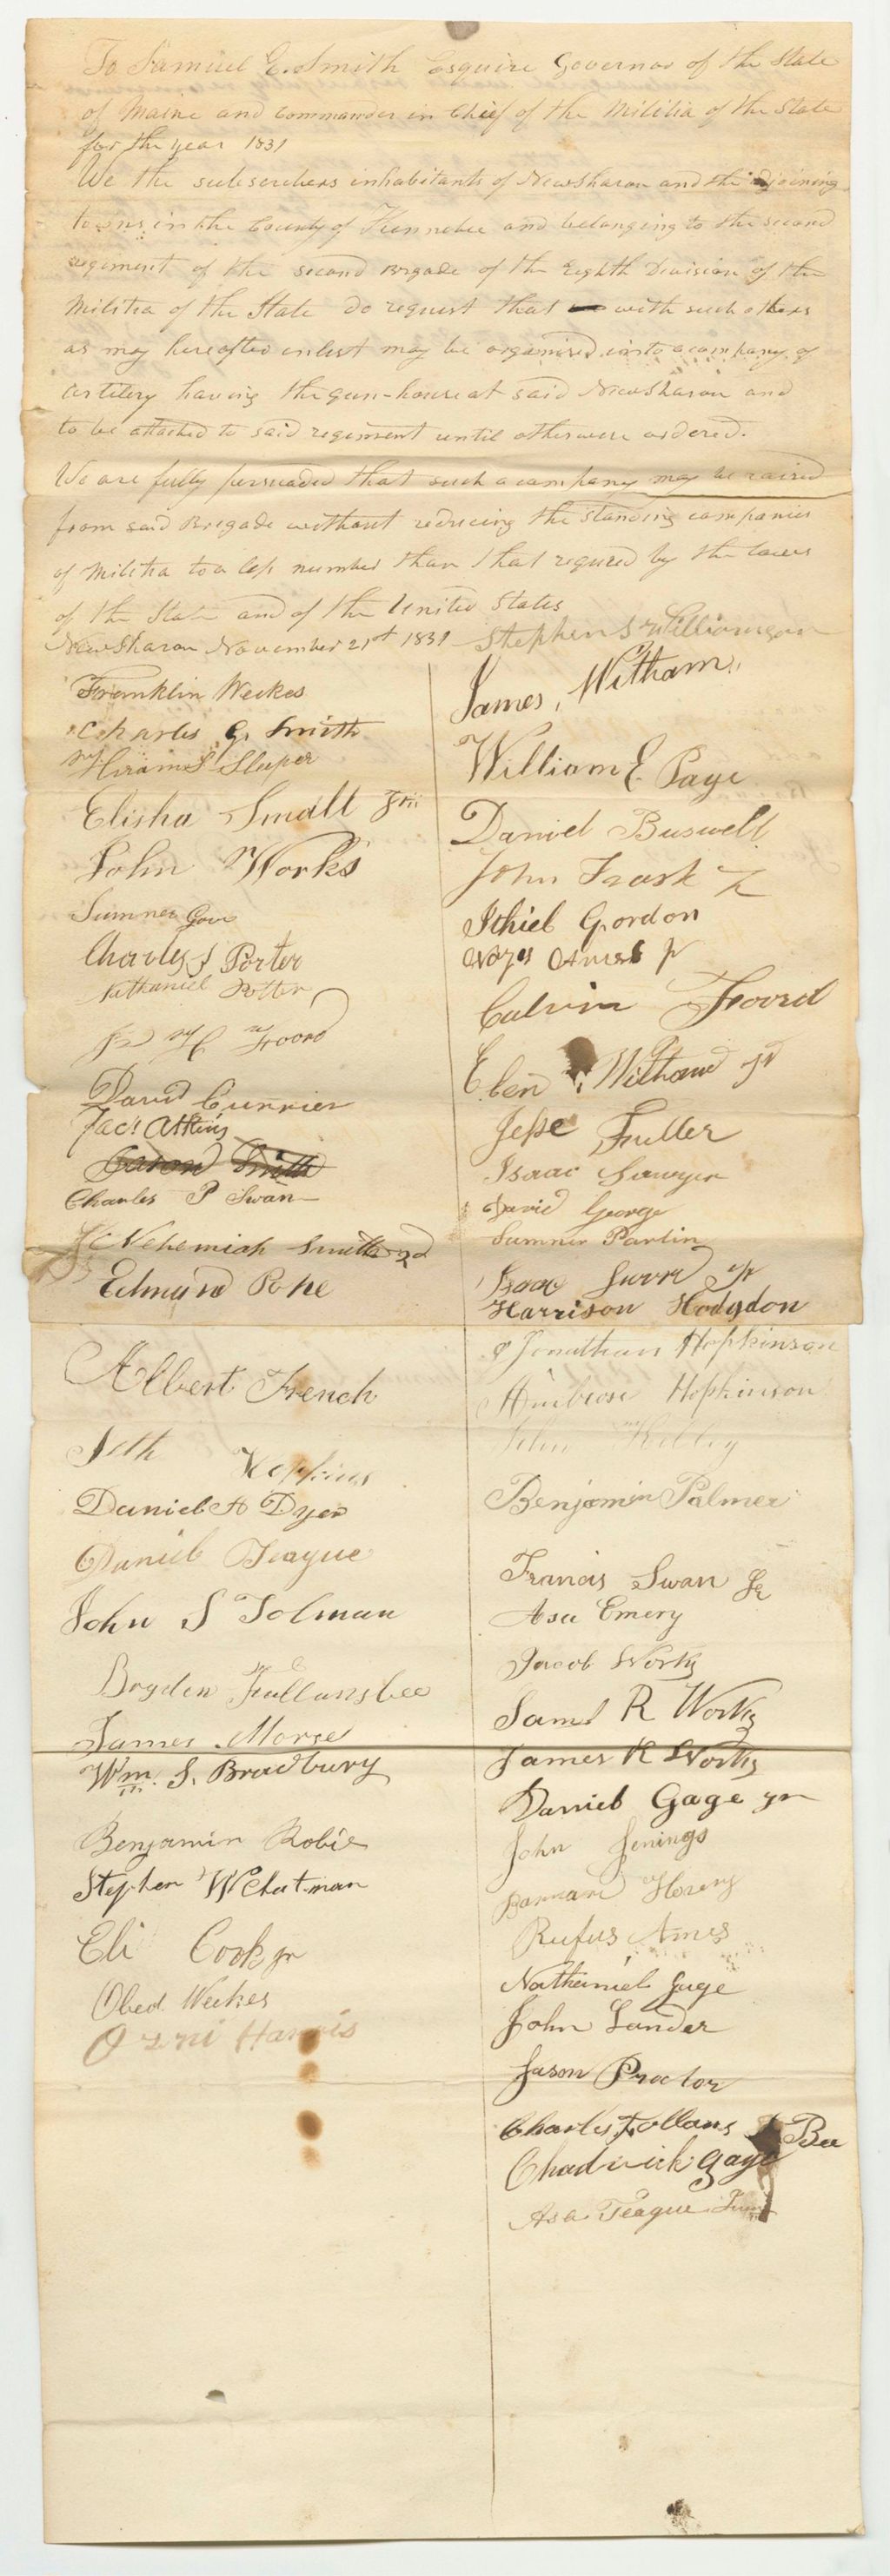 To Samuel E. Smith Esquire Governor of the State
of Maine and Commander in Chief of the Militia of the State
for the year 1831
We the subscribers inhabitants of New Sharon and the adjoining
towns in the County of Kennebec and belonging to the second
regiment of the second Brigade of the Eighth Division of the
Militia of the State do request that with such others
as may hereafter inlist may be organised into a company of
artilery having the gun-house at said New Sharon and
to be attached to said regiment until otherwise ordered.
We are fully persuaded that such a company may be raised
from said Brigade without reducing the standing companies
of Militia to a less number than that requred by the laws
of the State and of the United States
New Sharon November 21st 1831 Stephen S Williamson
Franklin Weekes
Charles G. Smith
Hiram S Sleeper
Elisha Small Jr
John Works
Sumner Gove
Charles S Porter
Nathaniel Potter
H Foord
David Currier
Jac. Atkins
Smith
Charles P Swan
Nehemiah Smith 2d
Edmund Pope
Albert French
Seth Hopkins
Daniel A Dyer
Daniel Teague
John S Tolman
Bogden Fullansbee
James Morse
Wm. S. Bradbury
Benjamin Robie
Stephen W Chatman
Eli Cook jr
Obed Weekes
Ozni Harris
James Witham
William E Page
Daniel Buswell
John Trask
Ithiel Gordon
Noyes Ames jr
Calvin Foord
Eben Witham jr
Jesse Fuller
Isaac Sawyer
David George
Sumner Partin
Isaac Jr
Harrison Hodgdon
Jonathan Hopkinson
Ambrose Hopkinson
John Kelley
Benjamin Palmer
Francis Swan Jr
Asa Emery
Jacob Works
Saml R Works
James R Works
Daniel Gage jr
John Jenings
Barnard
Rufus Ames
Nathaniel Gage
John Lander
Jason Proctor
Charles Follans Bee
Chadwick Gage
Asa Teague Jun